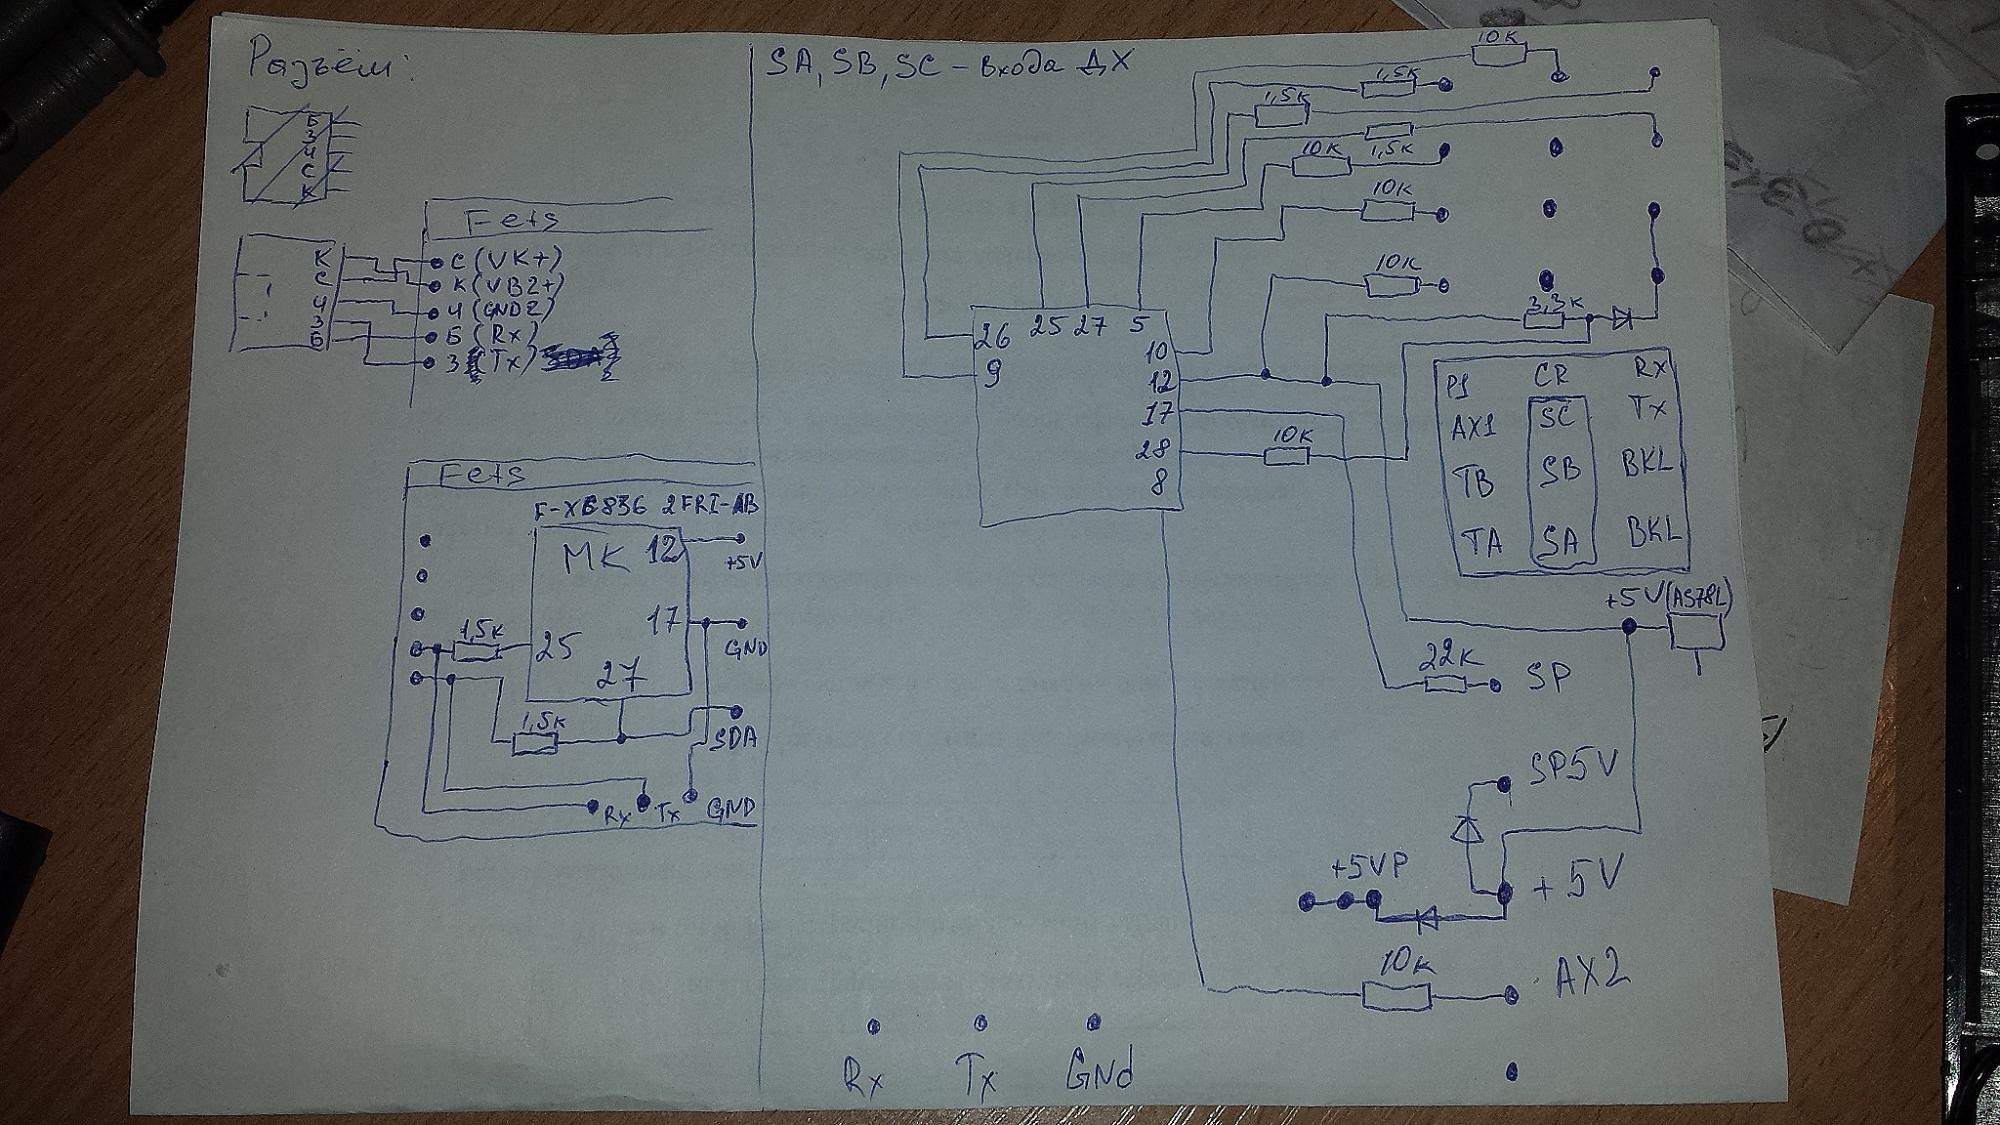 Разъём:
Б
З
Ч
С
К
Fets
К
С
Ч
З
Б
С (VK+)
К (VB2+)
Ч (GND2)
Б (Rx)
З (Tx)
Fets
МК
12
+5V
17
GND
1,5к
25
27
1,5к
SDA
Rx
Tx
GND
SA, SB, SC - входа ДХ
10к
1,5к
1,5к
1,5к
10к
10к
10к
3,3к
26
25
27
5
9
10
12
17
28
8
10к
P1
CR
Rx
AX1
SC
Tx
TB
SB
BKL
TA
SA
BKL
+5V (AS78L)
22к
SP
SP5V
+5VP
+5V
10к
AX2
Rx
Tx
GNd